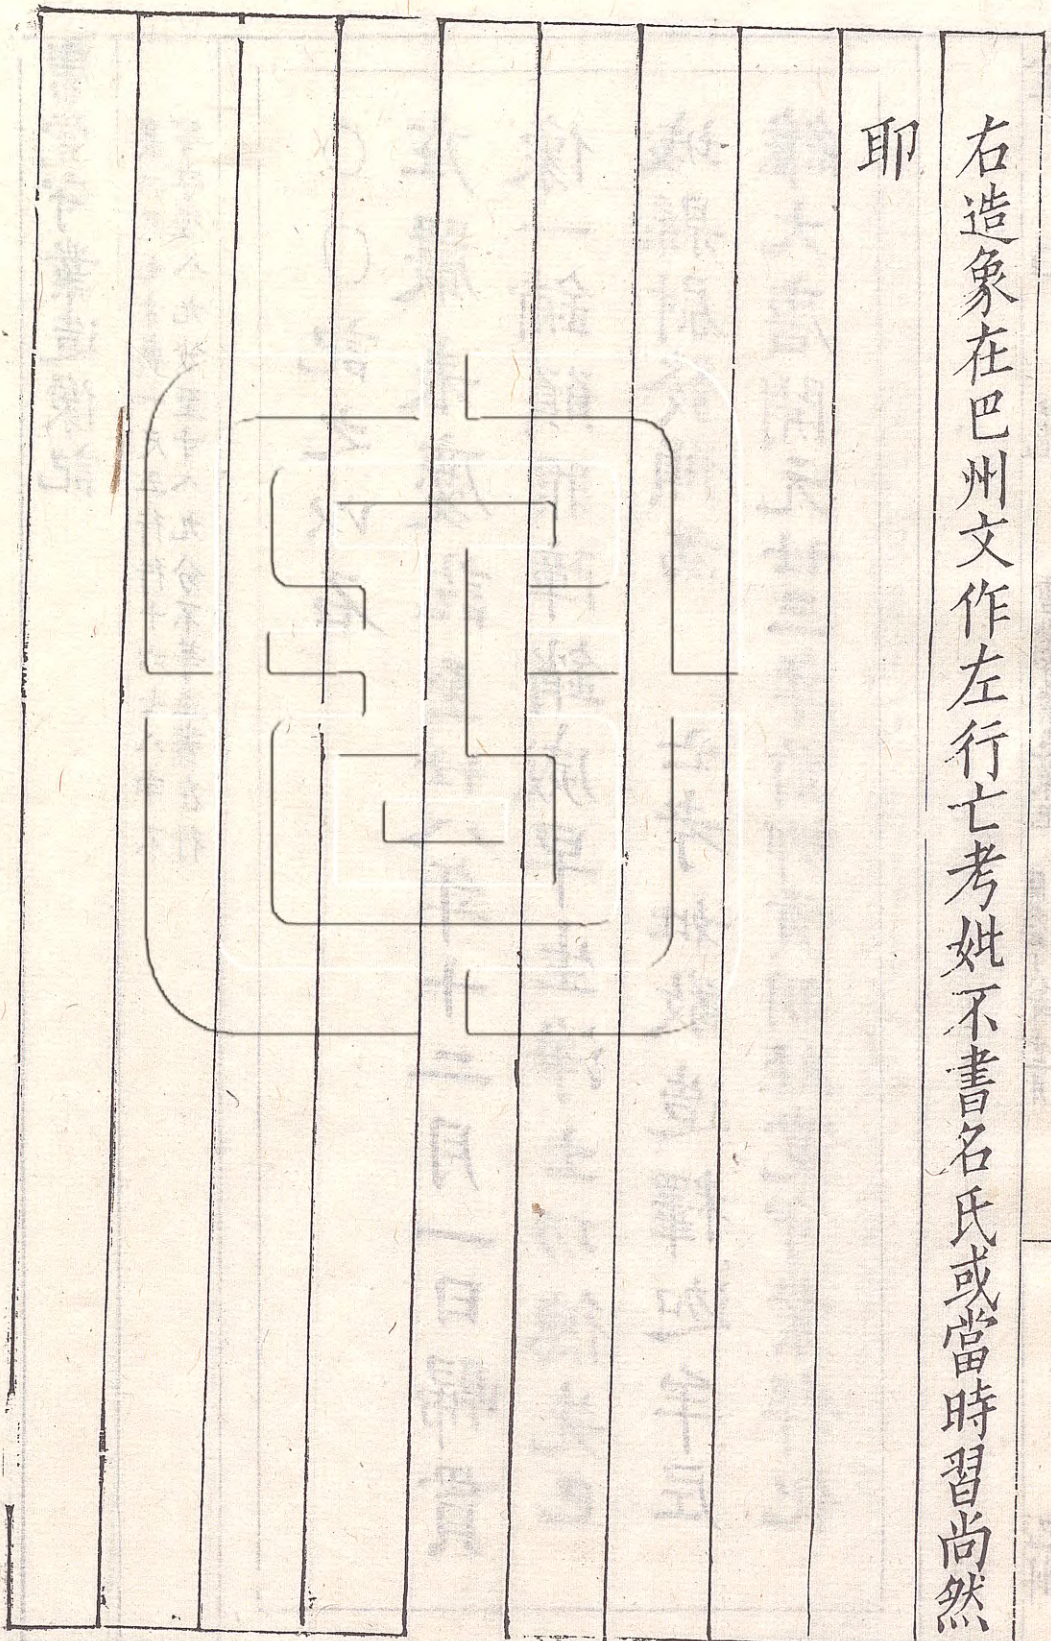 右造象在巴州文作左行亡考妣不書名氏或當時習尚然
耶